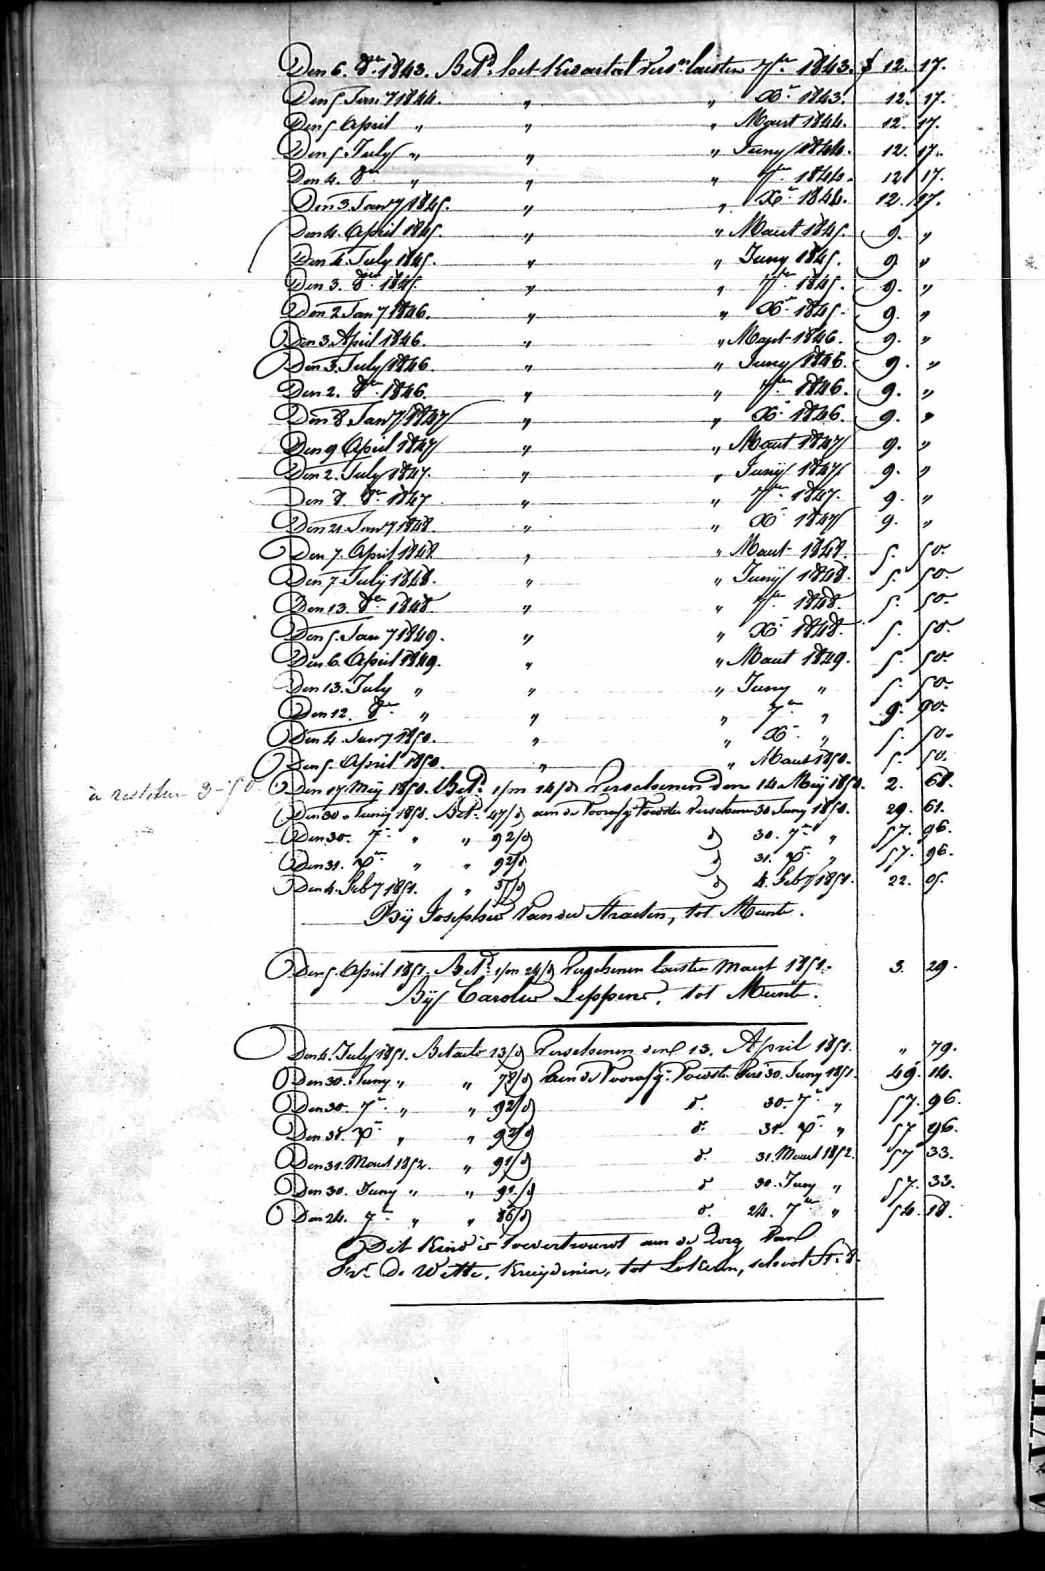 Den 6. 8er 1843. Betd. het kwartaal vers. laesten 7ber 1843. f 12. 17.
Den 5 Jany 1844. " " Xr 1843. 12. 17.
Den 5 April " " " Maart 1844. 12. 17.
Den 5 July " " " Juny 1844. 12. 17.
Den 4. 8er " " " 7ber 1844. 12 17.
Den 3 Jany 1845. " " Xr 1844. 12. 17.
Den 4. April 1845. " " Maart 1845. 9. "
Den 4. July 1845. " " Juny 1845. 9 "
Den 3. 8er 1845. " " 7ber 1845. 9. "
Den 2 Jany 1846. " " Xr 1845. 9. "
Den 3 April 1846. " " Maart 1846. 9. "
Den 3. July 1846. " " Juny 1846. 9. "
Den 2. 8er 1846. " " 7ber 1846. 9. "
Den 8 Jany 1847 " " Xr 1846. 9. "
Den 9 April 1847 " " Maart 1847 9. "
Den 2. July 1847. " " Junij 1847 9. "
Den 8. 8er 1847 " " 7ber 1847. 9. "
Den 21. Jany 1848. " " Xr 1847 9. "
Den 7. April 1848 " " Maart 1848. 5. 50.
Den 7. July 1848. " " Junij 1848. 5. 50.
Den 13. 8er 1848. " " 7ber 1848. 5. 50.
Den 5. Jany 1849. " " Xr 1848. 5. 50.
Den 6. April 1849. " " Maart 1849. 5. 50.
Den 13. July " " " Juny " 5. 50.
Den 12. 8er " " " 7er " 9. 90.
Den 4. Jany 1850. " " Xr " 5. 50.
Den 5. April 1850. " " Maart 1850. 5. 50.
à restituer 3-50 Den 17. Meij 1850. Betd. 1/m 14/d verschenen den 14 Meij 1850. 2. 68.
Den 30 Junij 1850. Betd. 47/d aen de verschenen 30 Juny 1850. 29. 61.
Den 30. 7er " " 92/d d 30. 7er " 57. 96.
Den 31. Xr " " 92/d d 31. Xr " 57. 96.
Den 4. Feby 1851. " 35/d d 4. Feby 1851. 22. 05.
Bij Josephus Van der Straeten, tot Munte.
Den 5. April 1851. Betd. 1/m 24/d verschenen laesten maart 1851. 3. 29.
Bij Carolus Leppens, tot Munte.
Den 4. July 1851. Betaelt 13/d verschenen den 13. April 1851. " 79.
Den 30. Juny " " 78/d aen de vers. 30. Juny 1851. 49. 14.
Den 30. 7er " " 92/d d. 30. 7er " 57. 96.
Den 31. Xr " " 92/d d. 31. Xr " 57 96.
Den 31. Maart 1852. " 91/d d. 31. Maart 1852. 57 33.
Den 30. Juny " " 91/d d 30. Juny " 57. 33.
Den 24. 7er " " 86/d d. 24. 7er " 54. 18.
Dit kind is toevertrouwt aen de zorg van
De Wette, tot Lokeren,